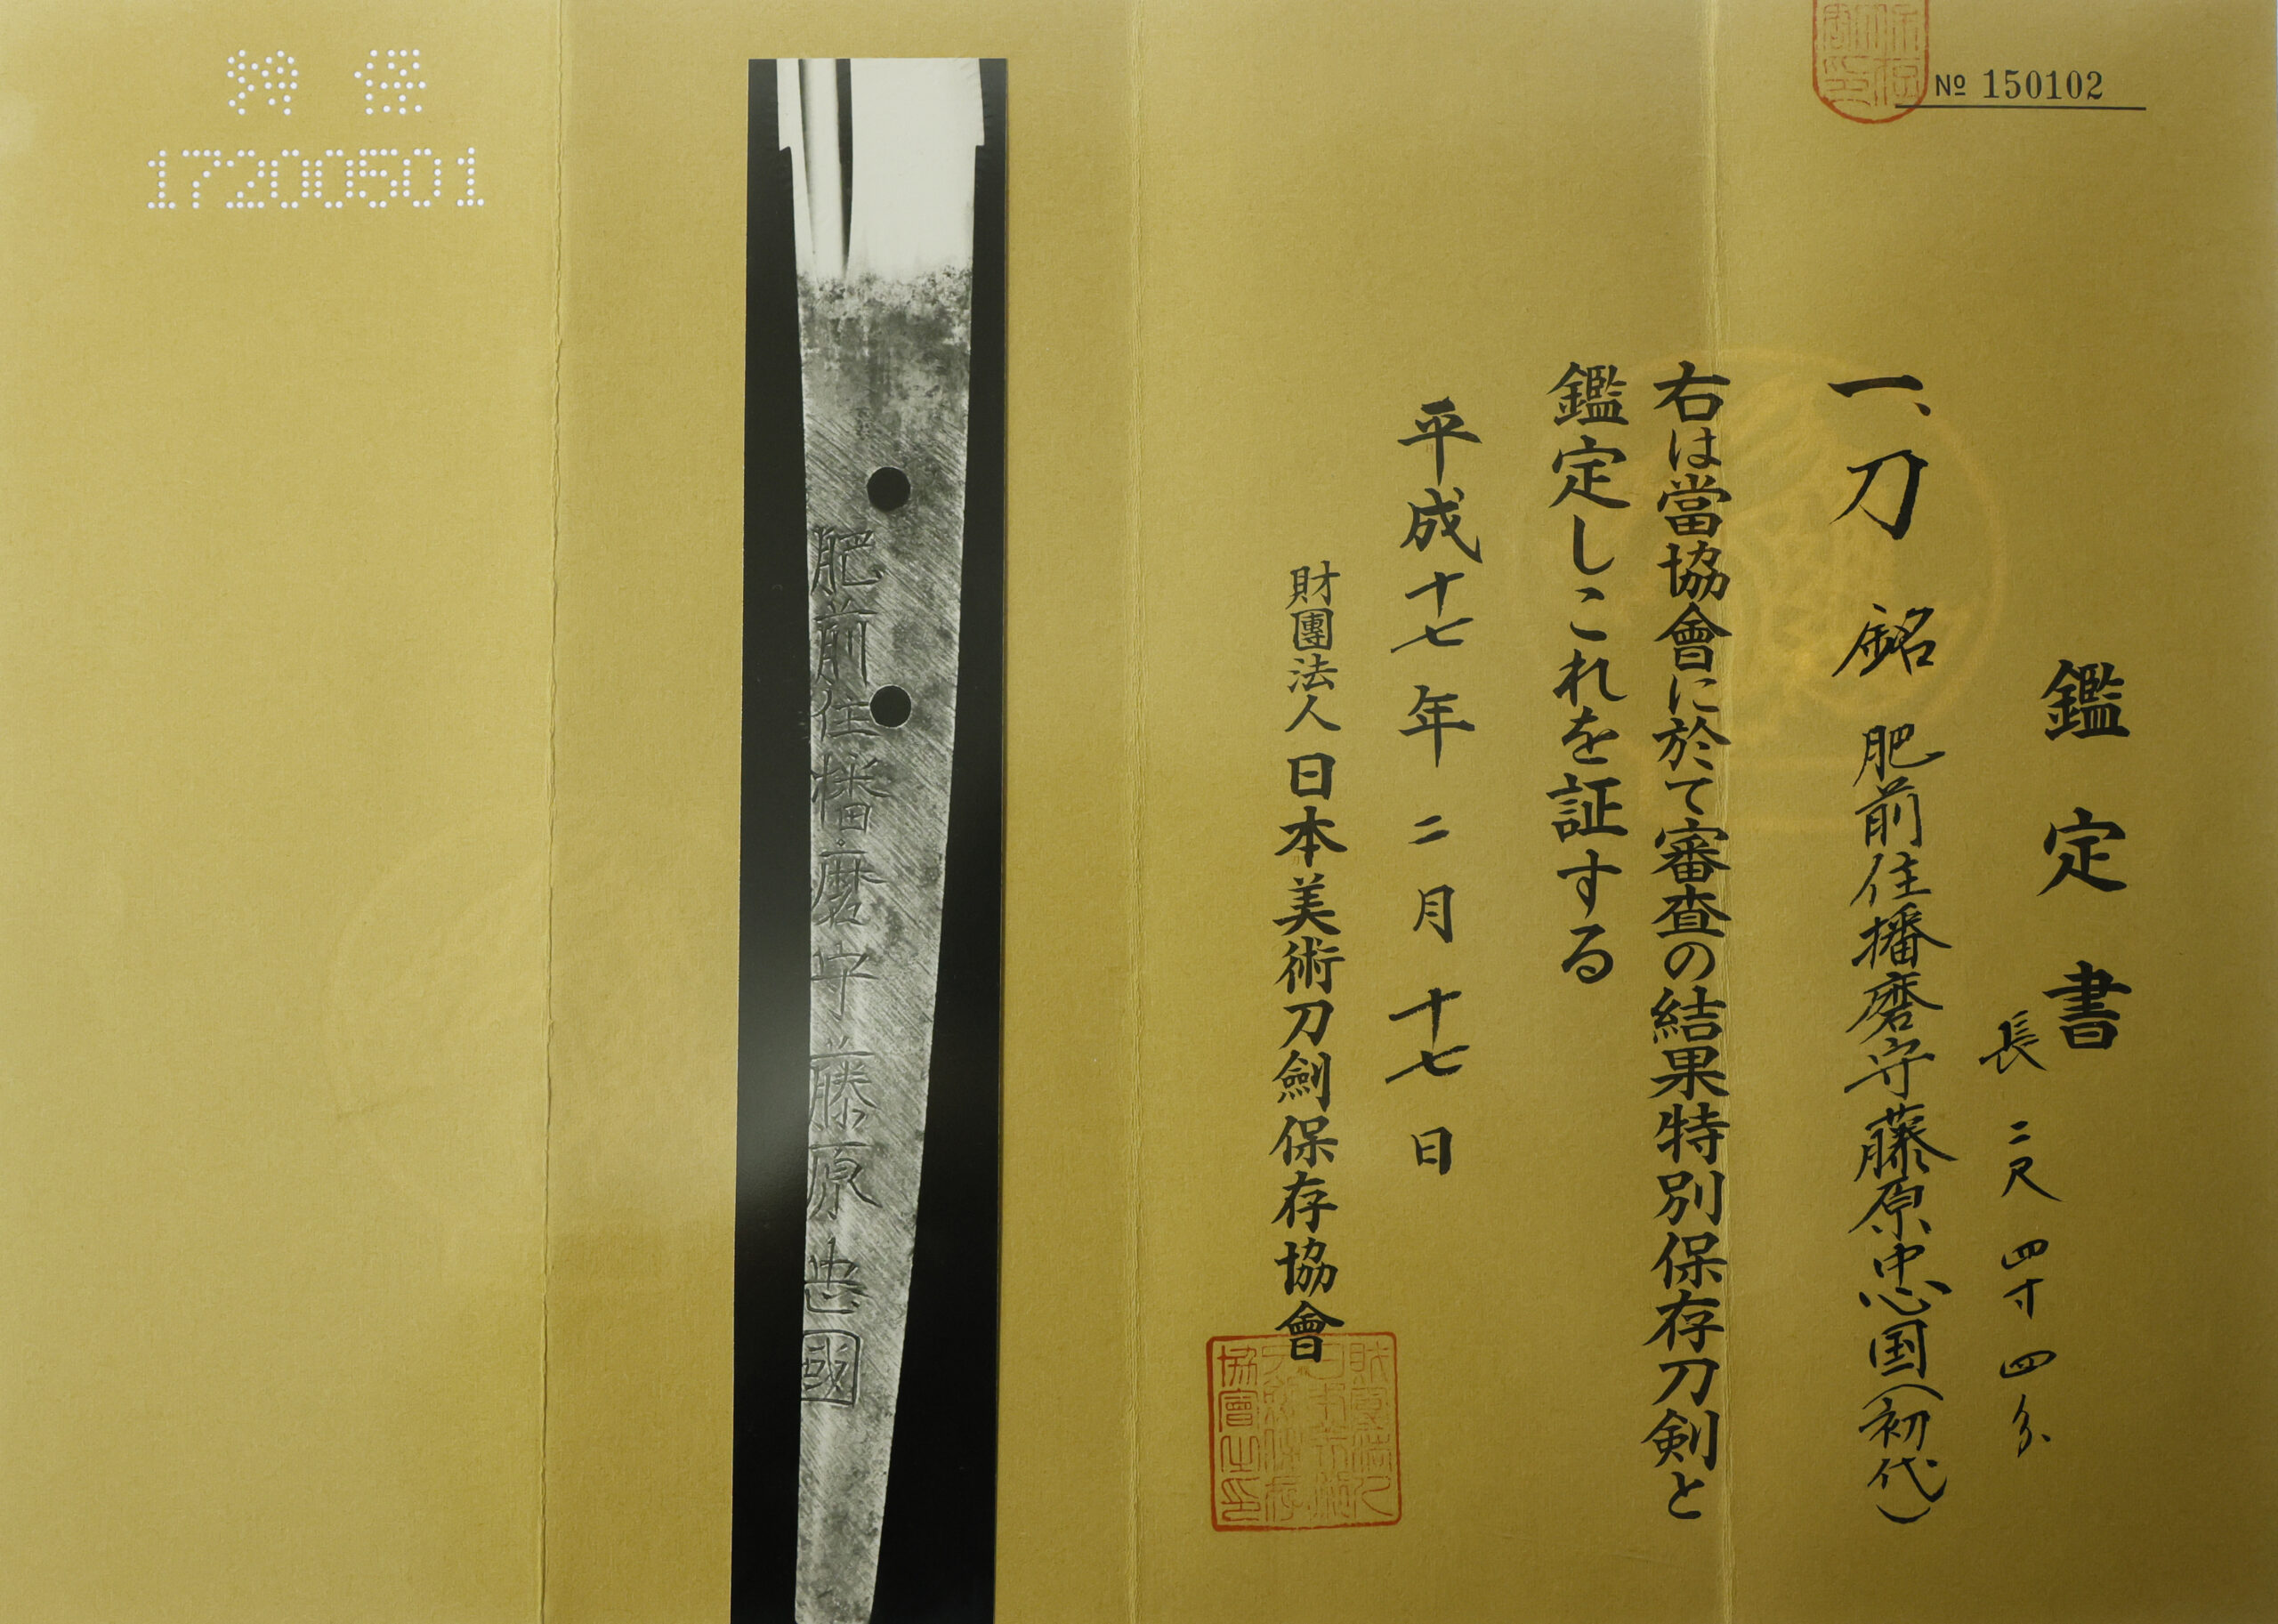 № 150102
鑑定書
長二尺四寸四分
一、刀 銘 肥前住播磨守藤原忠国(初代)
右は當協會に於て審査の結果特別保存刀剣と
鑑定しこれを証する
平成十七年二月十七日
財團法人日本美術刀劍保存協會
肥前住播磨守藤原忠國
特保
17200501